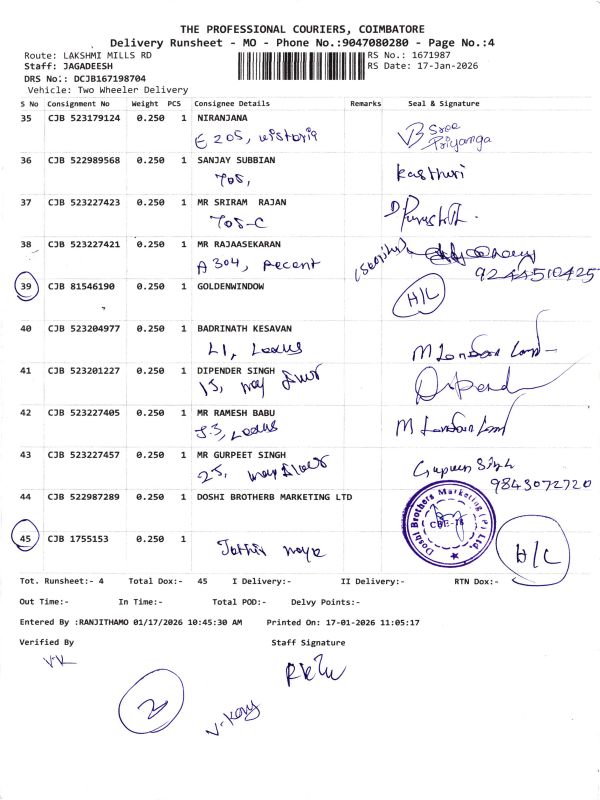 THE PROFESSIONAL COURIERS, COIMBATORE
Delivery Runsheet - MO - Phone No.:9047080280 - Page No.:4
Route: LAKSHMI MILLS RD
RS No.: 1671987
Staff: JAGADEESH
RS Date: 17-Jan-2026
DRS No.: DCJB167198704
Vehicle: Two Wheeler Delivery
S No Consignment No Weight PCS Consignee Details Remarks Seal & Signature
35 CJB 523179124 0.250 1 NIRANJANA
E 205, Sree Priyanga
36 CJB 522989568 0.250 1 SANJAY SUBBIAN
705, Kasthuri
37 CJB 523227423 0.250 1 MR SRIRAM RAJAN
705-C
38 CJB 523227421 0.250 1 MR RAJAASEKARAN
A 304, Pecent
9244510425
39 CJB 81546190 0.250 1 GOLDENWINDOW
H/C
40 CJB 523204977 0.250 1 BADRINATH KESAVAN
L1,
41 CJB 523201227 0.250 1 DIPENDER SINGH
15, Dipend
42 CJB 523227405 0.250 1 MR RAMESH BABU
43 CJB 523227457 0.250 1 MR GURPEET SINGH
25, Singh
9843072720
44 CJB 522987289 0.250 1 DOSHI BROTHERB MARKETING LTD
Doshi Brothers Marketing (P) Ltd.
45 CJB 1755153 0.250 1
H/C
Tot. Runsheet:- 4 Total Dox:- 45 I Delivery:- II Delivery:- RTN Dox:-
Out Time:- In Time:- Total POD:- Delvy Points:-
Entered By :RANJITHAMO 01/17/2026 10:45:30 AM Printed On: 17-01-2026 11:05:17
Verified By Staff Signature
2